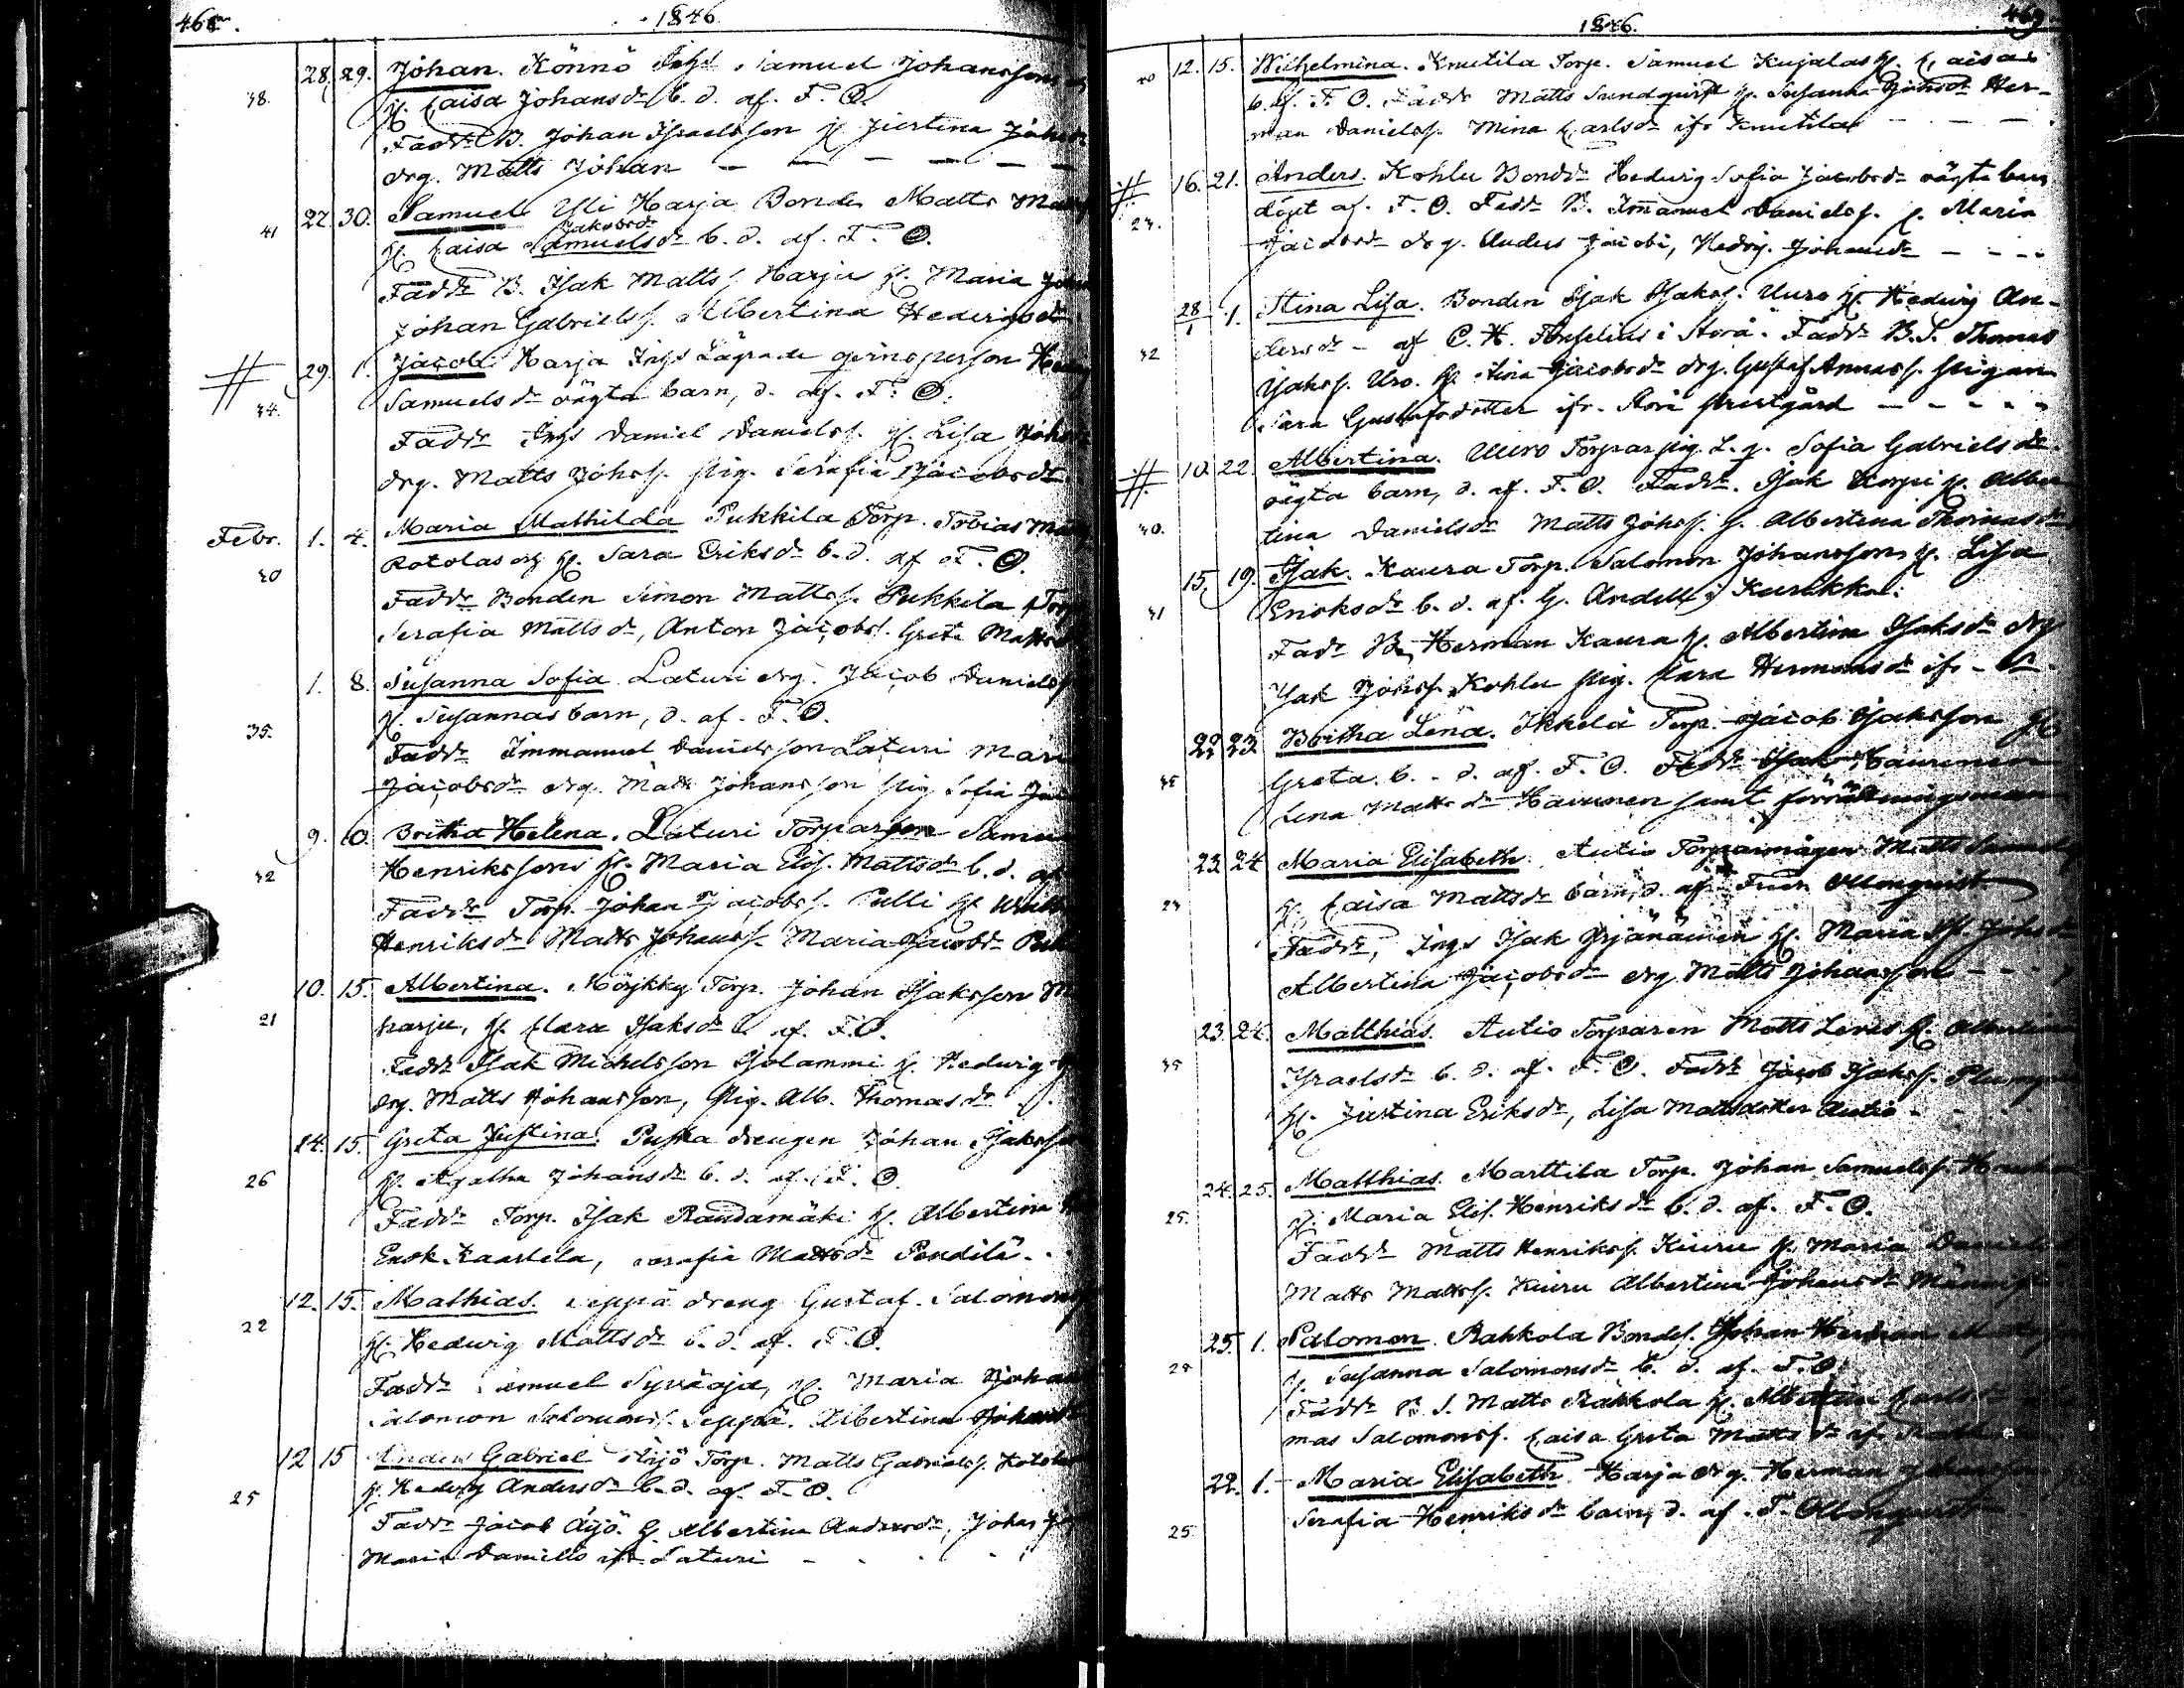 468. 1846.
28. 29. Johan. Könnö Inhs Samuel Johanssons
38. H. Caisa Johansdr b. d. af. F. O.
Faddr B. Johan Israelsson H. Justina Johans
drg. Matts Johan — — — — —
22. 30. Samuel Yli Harja Bonden Matts Matts
Jakobsdr
41 H. Caisa Samuelsdr b. d. af. F. O.
Faddr B. Isak Matts. Harju H. Maria Joh
Johan Gabrielss. Albertina Hedvigsdr
29. 1. Jacob Harja Inhs Lägrade qvinsperson Hedvig
34. Samuels dr oägta barn, d. af. F. O.
Faddr Inhs Daniel Daniels. H. Lisa Johs
drg. Matts Johs. pig. Serafia Jacobsdr
Febr. 1. 4. Maria Mathilda Pukkila Torp. Tobias Matts
40 Rotolas H. Sara Eriksdr b. d. af F. O.
Faddr Bonden Simon Matts. Pukkila
Serafia Mattsdr, Anton Jacobs. Greta Matts
1. 8. Susanna Sofia Laturi drg. Jacob Daniels
35. H. Susannas barn, d. af. F. O.
Faddr Immanuel Danielsson Laturi Mari
Jacobsdr drg. Matts Johansson pig Sofia
9. 10. Britha Helena. Laturi Torparson Samu
42 Henrikssons H. Maria Elis. Mattsdr b. d. af
Faddr Torp. Johan Jacobs. Pulli H.
Henriksdr Matts Johanss. Maria Jacobsdr
10. 15. Albertina. Möykky Torp. Johan Isaksson
21 harju, H. Clara Isaksdr b af. F. O.
Faddr Isak Michelsson Isolammi H. Hedvig
drg. Matts Johansson, Pig. Alb. Thomasdr
14. 15. Greta Justina. Puska drengen Johan Isakss
26 H. Agatha Johansdr b. d. af. F. O.
Faddr Torp. Isak Randamäki H. Albertina
Enok Kaartela, Serafia Mattsdr Penditä.
12. 15. Mathias. Seppä dreng Gustaf Salomons
22 H. Hedwig Mattsdr b. d. af. F. O.
Faddr Samuel Syväoja, H. Maria Johan
Salomon Salomons. Seppä. Albertina Johans
12 15 Anders Gabriel Äijö Torp. Matts Gabriels.
25 H. Hedvig Andersdr b. d. af. F. O.
Faddr Jacob Äijö. H Albertina Andersdr, Johan
Maria Daniels ifr Laturi
469 1846.
12. 15. Wilhelmina. Knutila Torp. Samuel Kujalas H. Caisas
b. af. F. O. Faddr Matts Sundqvist H. Susanna Johsdr Her-
man Daniels. Mina Carlsdr ifr Knutila
16. 21. Anders. Kohlu Bondr Hedvig Sofia Jacobsdr oägta barn
döpt af. F. O. Faddr B. Immanuel Daniels. H. Maria
Jacobsdr drg. Anders Jacobi, Hedvig. Johansdr
28/1 1. Stina Lisa. Bonden Isak Isaks. Uuro H. Hedvig An-
32 dersdr — af C. H. Forselius i Storå. Faddr B. S. Thomas
Isaks. Uro. H. Stina Jacobsdr drg. Gustaf Annas. pigan
Sara Gustafsdotter ifr. Storå prestgård
10. 22. Albertina. Uuro Torpar pig. L. q. Sofia Gabrielsdr
oägta barn, d. af. F. O. Faddr. Isak Korpi H. Alber
40. tina Danielsdr Matts Johs. H. Albertina Thomasdr
15. 19. Isak. Kaura Torp. Salomon Johanssons H. Lisa
41 Enoksdr b. d. af. G. Andell i Kurikka.
Faddr B. Herman Kaura H. Albertina Isaksdr drg
Isak Johss. Kohlu pig. Clara Hermansdr ifr
22 23. Britha Lena. Ikkelä Torp. Jacob Isaksson H.
Greta b. d. af. F. O. Faddr Isak Haurunen
Lena Mattsdr Havunen samt förrättningsman
23. 24 Maria Elisabeth. Autio Torparmågen Matts Samuels
H. Caisa Mattsdr barn, d. af. Fredr Ollonqvist
Faddr, Inhs Isak Yrjänäinen H. Maria Johsdr
Albertina Jacobsdr drg Matts Johansson
23. 24. Matthias. Autio Torparen Matts Levis H. Albertina
35 Israelsdr b. d. af. F. O. Faddr Jacob Isaks.
H. Justina Eriksdr, Lisa Mattsdotter Autio
24. 25. Matthias. Marttila Torp. Johan Samuels.
25. H. Maria Elis. Henriksdr b. d. af. F. O.
Faddr Matts Henrikss. Kiuru H. Maria Daniels
Matts Matts. Kiuru Albertina Johansdr
25. 1. Salomon. Rahkola Bondes. Johan Herman
H. Susanna Salomonsdr b. d. af. F. O.
Faddr B. S. Matts Rahkola H. Albertina Carlsdr
mas Salomons. Caisa Greta Mattsdr af
22. 1. Maria Elisabeth. Harja drg. Herman
25. Serafia Henriksdr barn, d. af. F. Ollonqvist